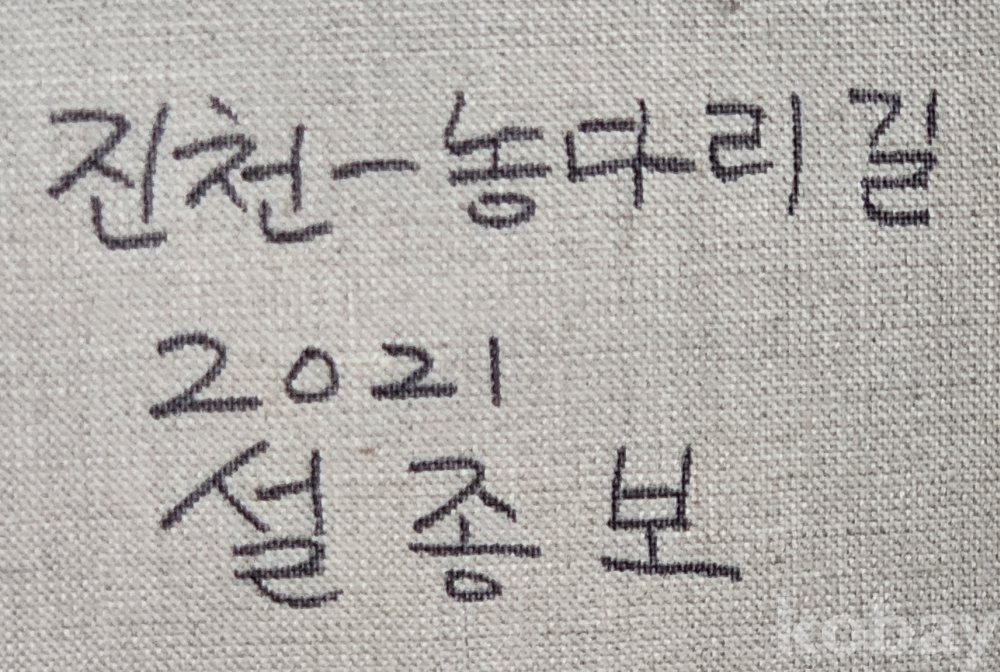 진천-농다리 길
2021
설종보
kobay